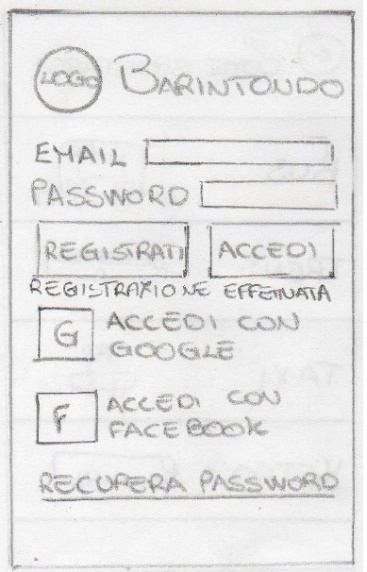 LOGO BARINTONDO
EMAIL
PASSWORD
REGISTRATI ACCEDI
REGISTRAZIONE EFFETTUATA
G ACCEDI CON
GOOGLE
F ACCEDI CON
FACEBOOK
RECUPERA PASSWORD
TAXI